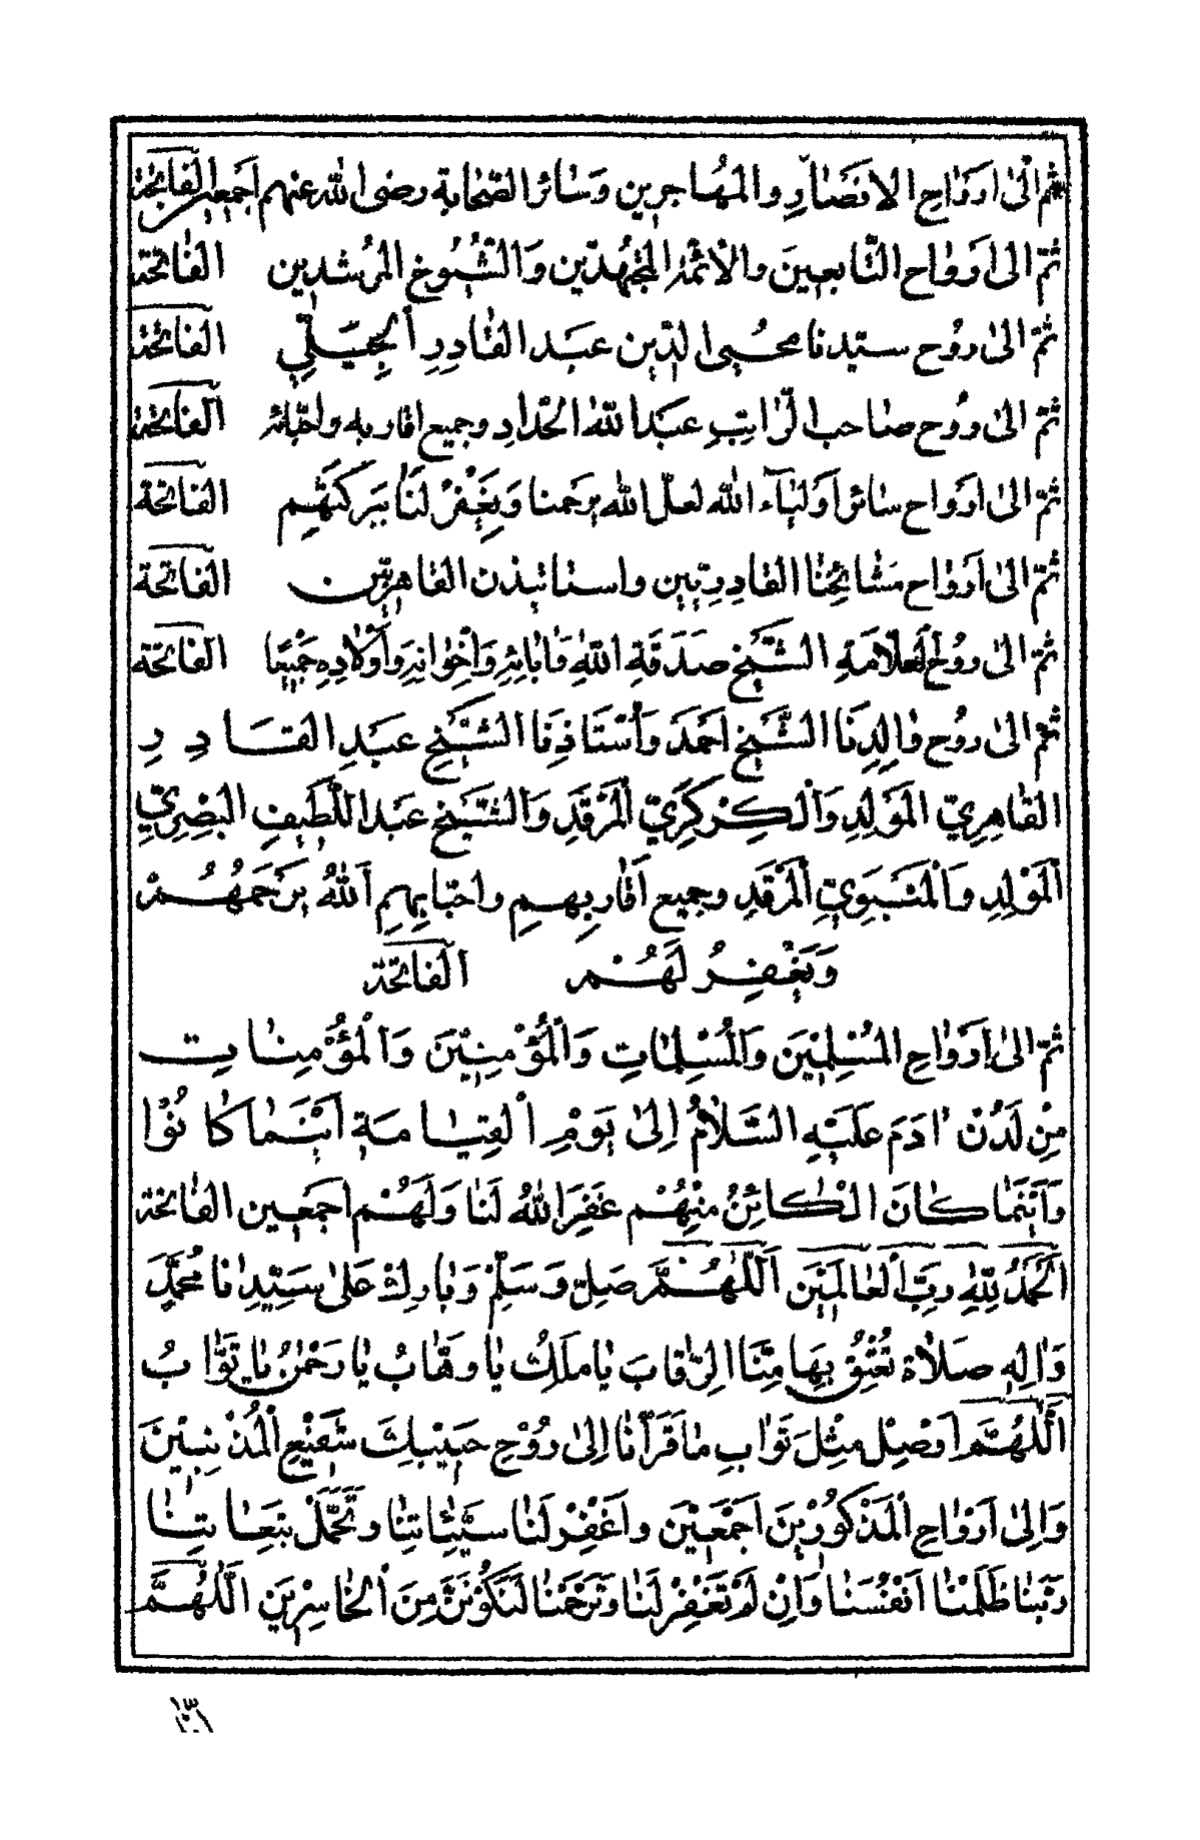 ثم الى ارواح الانصار والمهاجرين وسائر الصحابة رضى الله عنهم اجمعين الفاتحة
ثم الى ارواح التابعين والائمة المجتهدين والشيوخ المرشدين الفاتحة
ثم الى روح سيدنا محيى الدين عبد القادر الجيلي الفاتحة
ثم الى روح صاحب الراتب عبد الله الحداد وجميع اقاربه واحبائه الفاتحة
ثم الى ارواح سائر اولياء الله لعل الله يرحمنا ويغفر لنا ببركتهم الفاتحة
ثم الى ارواح مشائخنا القادريين واساتيذن القاهريين الفاتحة
ثم الى روح العلامة الشيخ صدقة الله وآبائه وإخوانه وأولاده جميعا الفاتحة
ثم الى روح والدنا الشيخ أحمد وأستاذنا الشيخ عبد القادر
القاهري المولد والكركري المرقد والشيخ عبد اللطيف البصري
المولد والمنبوي المرقد وجميع أقاربهم واحبابهم الله يرحمهم
ويغفر لهم الفاتحة
ثم الى أرواح المسلمين والمسلمات والمؤمنين والمؤمنات
من لدن ادم عليه السلام إلى يوم القيامة أينما كانوا
وأينما كان الكائن منهم غفر الله لنا ولهم اجمعين الفاتحة
الحمد لله رب العالمين اللهم صل وسلم وبارك على سيدنا محمد
واله صلاة تعتق بها منا الرقاب يا ملك يا وهاب يا رحمن يا تواب
اللهم اوصل مثل ثواب ما قرأنا إلى روح حبيبك شفيع المذنبين
وإلى أرواح المذكورين أجمعين واغفر لنا سيئاتنا وتحمل تبعاتنا
ربنا ظلمنا انفسنا وإن لم تغفر لنا وترحمنا لنكونن من الخاسرين اللهم